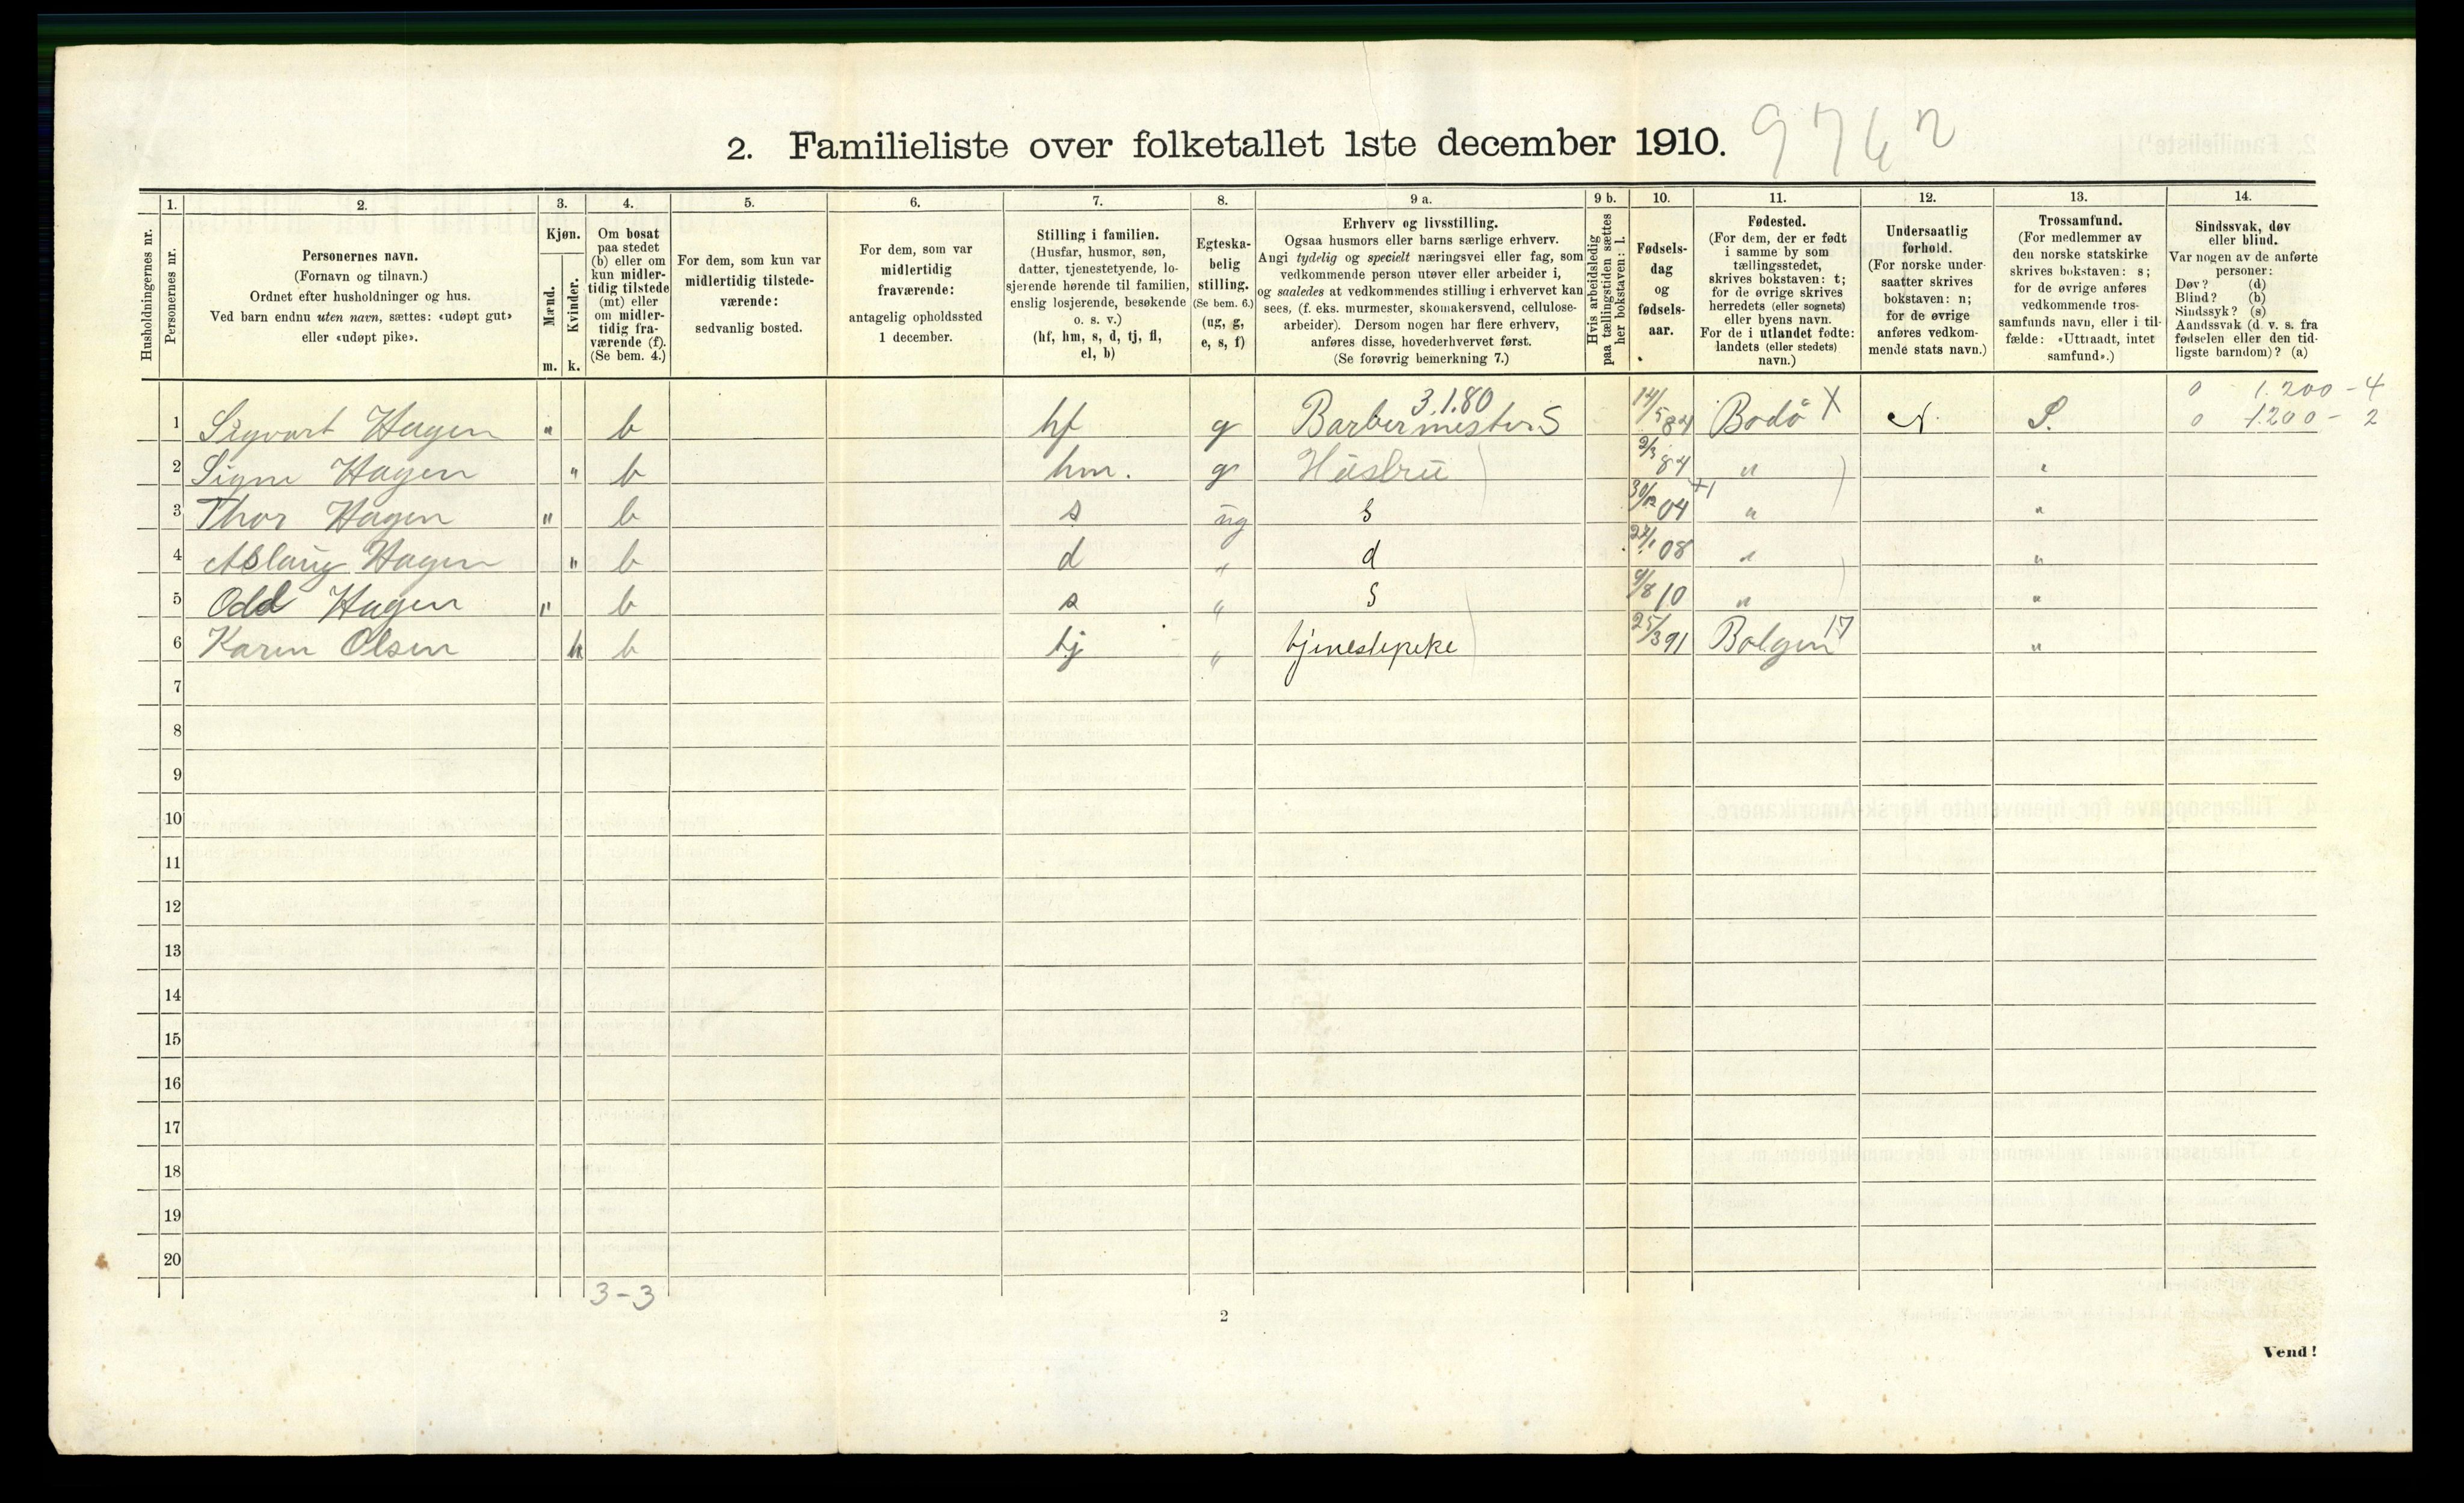 2. Familieliste over folketallet 1ste december 1910. 9762
Husholdningernes nr.
1. Personernes nr.
2. Personernes navn. (Fornavn og tilnavn.) Ordnet efter husholdninger og hus. Ved barn endnu uten navn, sættes: «udøpt gut» eller «udøpt pike».
3. Kjøn. Mænd. m. Kvinder. k.
4. Om bosat paa stedet (b) eller om kun midlertidig tilstede (mt) eller om midlertidig fraværende (f). (Se bem. 4.)
5. For dem, som kun var midlertidig tilstedeværende: sedvanlig bosted.
6. For dem, som var midlertidig fraværende: antagelig opholdssted 1 december.
7. Stilling i familien. (Husfar, husmor, søn, datter, tjenestetyende, losjerende hørende til familien, enslig losjerende, besøkende o. s. v.) (hf, hm, s, d, tj, fl, el, b)
8. Egteskabelig stilling. (Se bem. 6.) (ug, g, e, s, f)
9 a. Erhverv og livsstilling. Ogsaa husmors eller barns særlige erhverv. Angi tydelig og specielt næringsvei eller fag, som vedkommende person utøver eller arbeider i, og saaledes at vedkommendes stilling i erhvervet kan sees, (f. eks. murmester, skomakersvend, cellulosearbeider). Dersom nogen har flere erhverv, anføres disse, hovederhvervet først. (Se forøvrig bemerkning 7.)
9 b. Hvis arbeidsledig paa tællingstiden sættes her bokstaven: l.
10. Fødselsdag og fødselsaar.
11. Fødested. (For dem, der er født i samme by som tællingsstedet, skrives bokstaven: t; for de øvrige skrives herredets (eller sognets) eller byens navn. For de i utlandet fødte: landets (eller stedets) navn.)
12. Undersaatlig forhold. (For norske undersaatter skrives bokstaven: n; for de øvrige anføres vedkommende stats navn.)
13. Trossamfund. (For medlemmer av den norske statskirke skrives bokstaven: s; for de øvrige anføres vedkommende trossamfunds navn, eller i tilfælde: «Uttraadt, intet samfund».)
14. Sindssvak, døv eller blind. Var nogen av de anførte personer: Døv? (d) Blind? (b) Sindssyk? (s) Aandssvak (d. v. s. fra fødselen eller den tidligste barndom)? (a)
3.1.80 0 1.200 - 4
1 Sigvart Hagen " b hf g Barbermester S 14/5 84 Bodö X N. S. 0 1200 - 2
2 Signe Hagen " b hm. g Hüstrü 84 " "
3 Thor Hagen " b s üg s 30/12 04 " "
4 Aslaüg Hagen " b d " d 08 " "
5 Odd Hagen " b s " s 10 " "
6 Karen Olsen k b tj " tjenestepike 25/3 91 17 "
7
8
9
10
11
12
13
14
15
16
17
18
19
20
3-3
2
Vend!